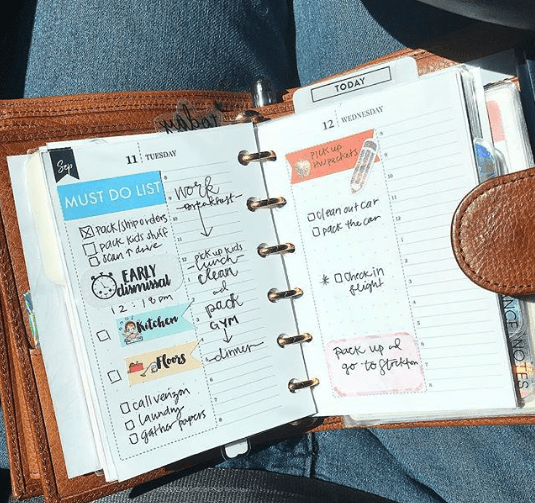 Sep
11 TUESDAY
MUST DO LIST
pack/ship orders
pack kids stuff
scan & drive
EARLY
dismissal
12:18pm
Kitchen
Floors
call verizon
laundry
gather papers
work
breakfast
pick up kids
lunch
clean
and
pack
GYM
dinner
TODAY
12 WEDNESDAY
PICK up
hw packets
clean out car
pack the car
* Check in
flight
pack up and
go to Stockton
NOTES